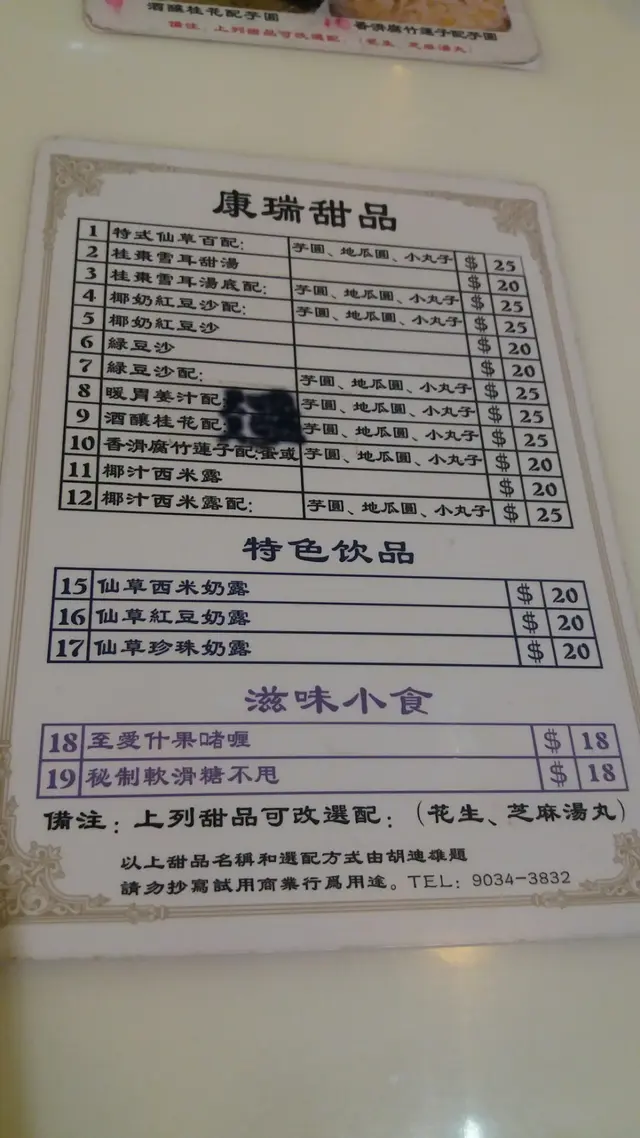 酒釀桂花配芋圓
香滑腐竹蓮子配芋圓
備注：上列甜品可改選配：（花生、芝麻湯丸）
康瑞甜品
1 特式仙草百配: 芋圓、地瓜圓、小丸子 $ 25
2 桂棗雪耳甜湯 $ 20
3 桂棗雪耳湯底配: 芋圓、地瓜圓、小丸子 $ 25
4 椰奶紅豆沙配: 芋圓、地瓜圓、小丸子 $ 25
5 椰奶紅豆沙 $ 20
6 綠豆沙 $ 20
7 綠豆沙配: 芋圓、地瓜圓、小丸子 $ 25
8 暖胃姜汁配 芋圓、地瓜圓、小丸子 $ 25
9 酒釀桂花配: 芋圓、地瓜圓、小丸子 $ 25
10 香滑腐竹蓮子配:蛋或 芋圓、地瓜圓、小丸子 $ 20
11 椰汁西米露 $ 20
12 椰汁西米露配: 芋圓、地瓜圓、小丸子 $ 25
特色饮品
15 仙草西米奶露 $ 20
16 仙草紅豆奶露 $ 20
17 仙草珍珠奶露 $ 20
滋味小食
18 至愛什果啫喱 $ 18
19 秘制軟滑糖不甩 $ 18
備注：上列甜品可改選配：（花生、芝麻湯丸）
以上甜品名稱和選配方式由胡迪雄題
請勿抄寫試用商業行爲用途。TEL: 9034-3832